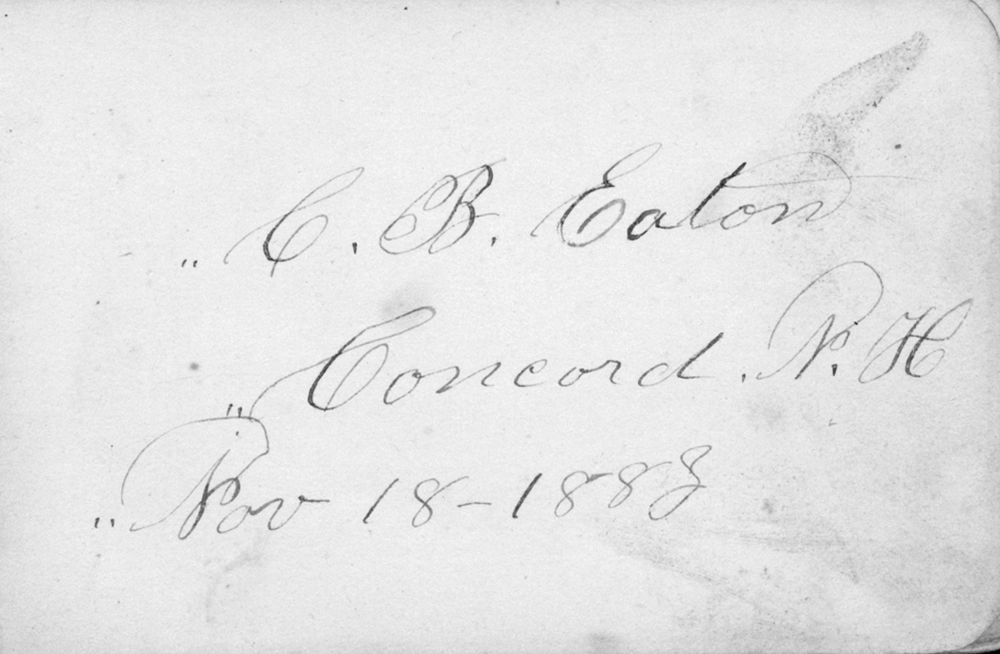 „ C. B. Eaton
„ Concord. N. H
„ Nov 18-1883